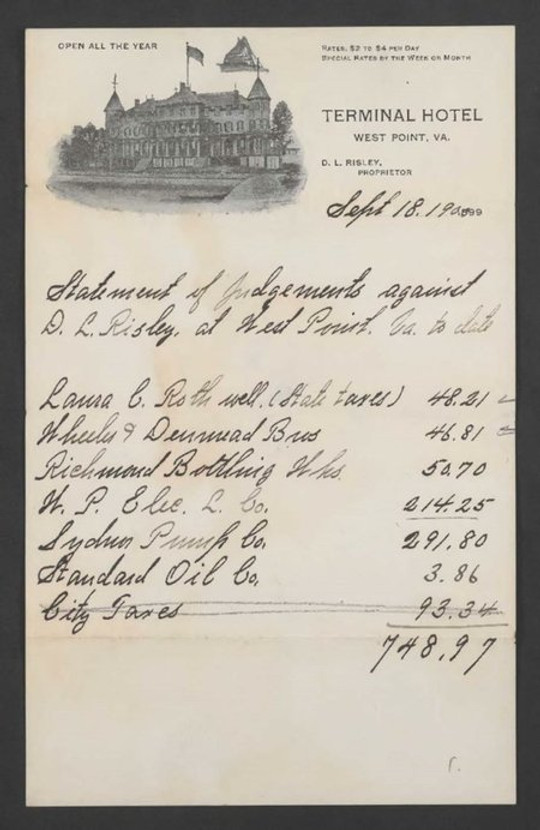 OPEN ALL THE YEAR
RATES, $2 TO $4 PER DAY
SPECIAL RATES BY THE WEEK OR MONTH
TERMINAL HOTEL
WEST POINT, VA.
D. L. RISLEY,
PROPRIETOR
Sept 18. 190
Statement of Judgements against
D. L. Risley, at West Point. Va. to date
Laura C. Rothwell. (State taxes) 48.21
Wheeler & Denmead Bros 46.81
Richmond Bottling Whs. 50.70
W. P. Elec. L. Co. 214.25
Sydnor Pump Co. 291.80
Standard Oil Co. 3.86
City Taxes 93.34
748.97